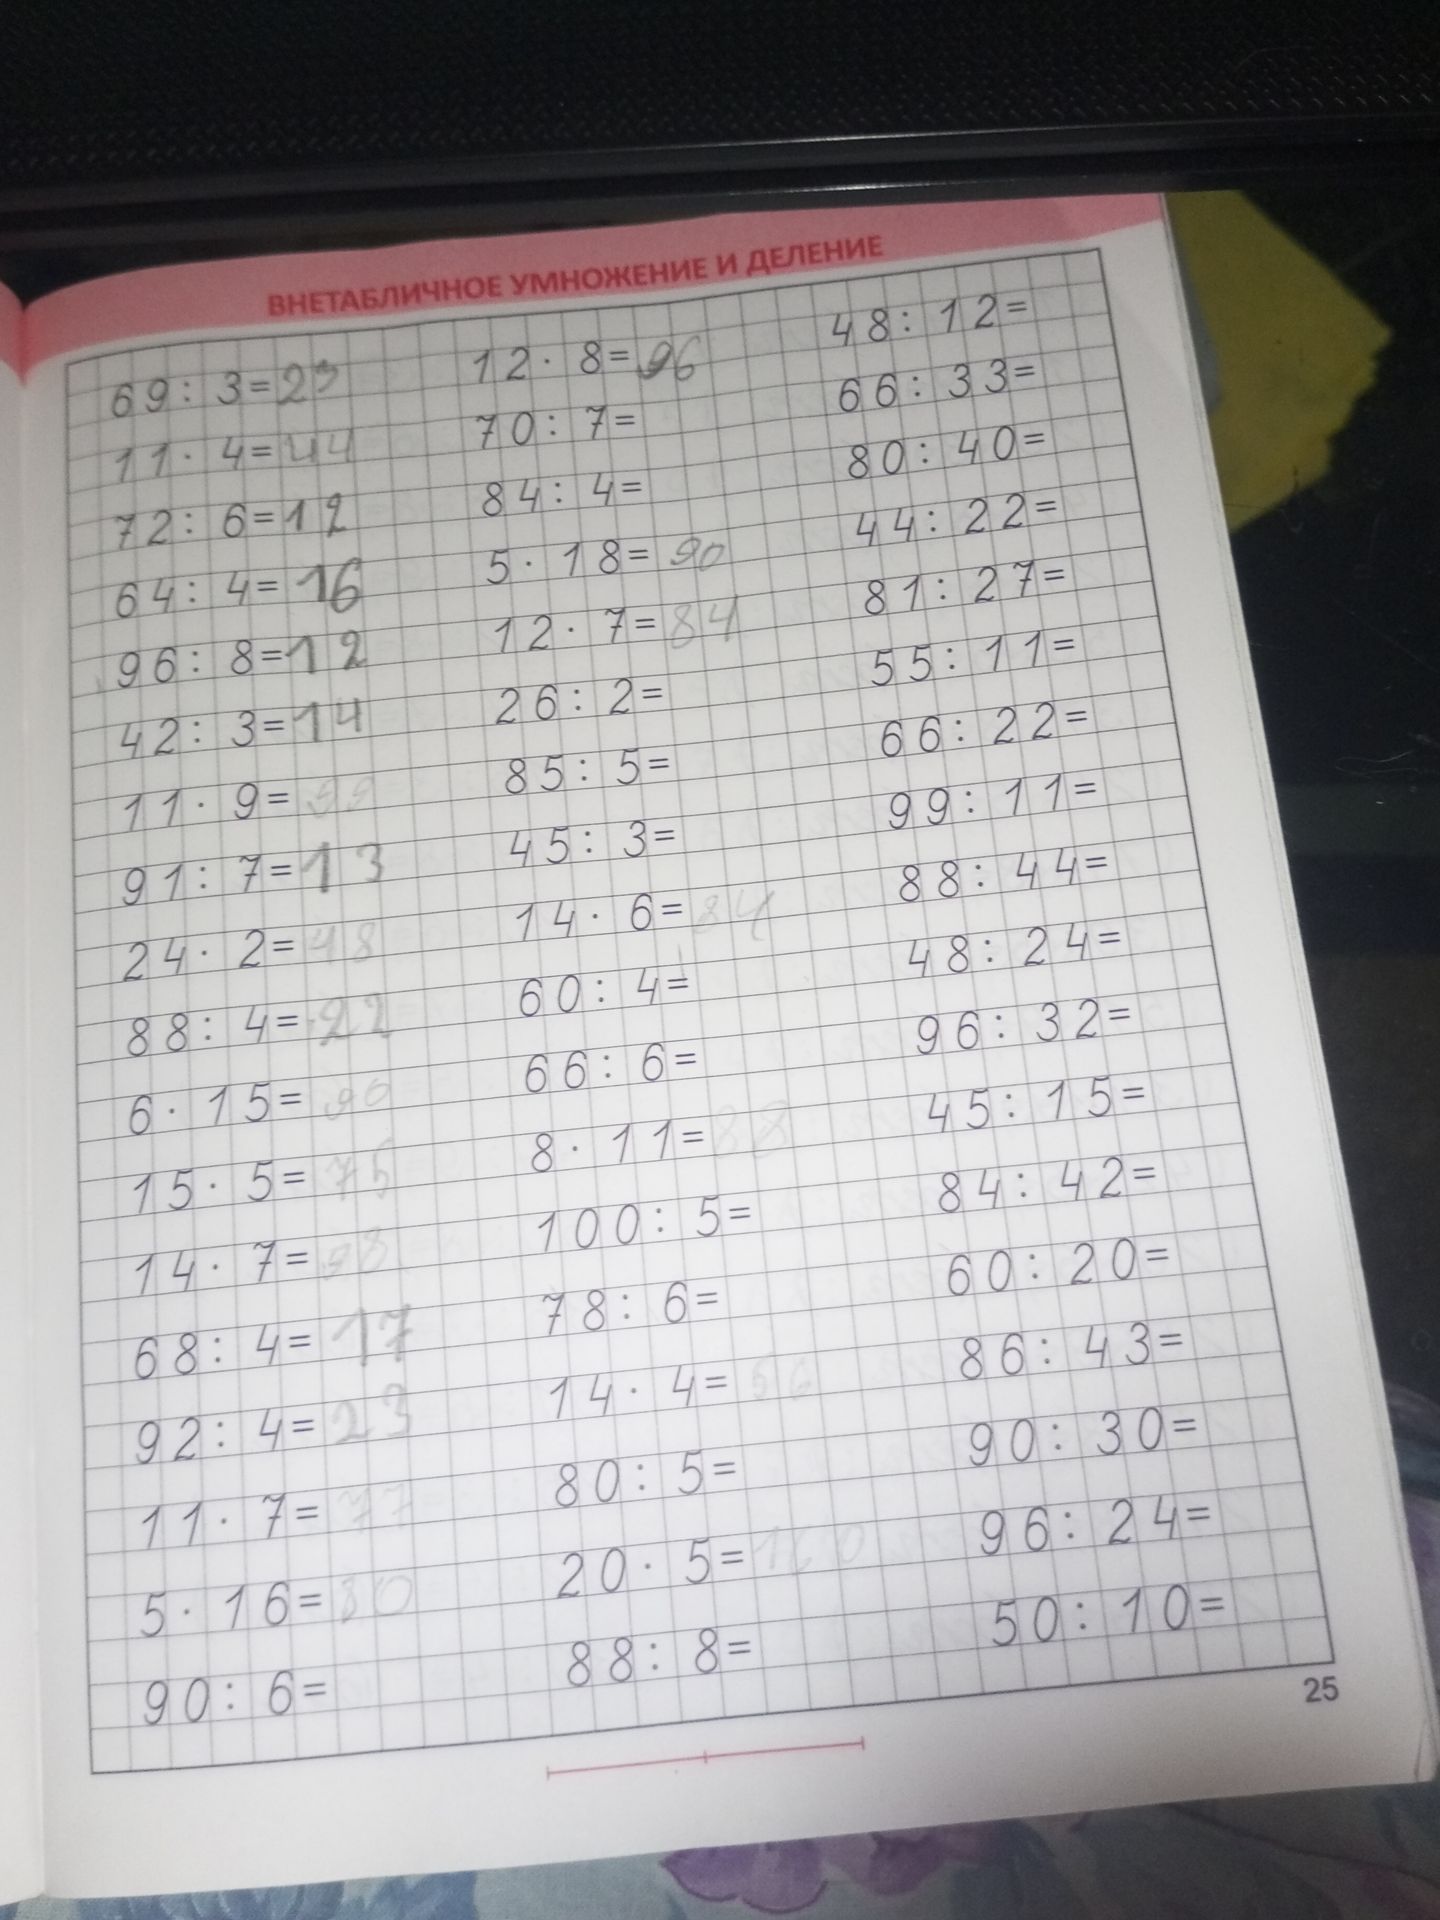 ВНЕТАБЛИЧНОЕ УМНОЖЕНИЕ И ДЕЛЕНИЕ
69: 3=23
11· 4=44
72: 6=12
64: 4=16
96: 8=12
42: 3=14
11· 9=99
91: 7=13
24· 2=48
88: 4=22
6· 15=90
15· 5=75
14· 7=98
68: 4=17
92: 4=23
11· 7=77
5· 16=80
90: 6=
12· 8=96
70: 7=
84: 4=
5· 18=90
12· 7=84
26: 2=
85: 5=
45: 3=
14· 6=84
60: 4=
66: 6=
8· 11=88
100: 5=
78: 6=
14· 4=56
80: 5=
20· 5=100
88: 8=
48: 12=
66: 33=
80: 40=
44: 22=
81: 27=
55: 11=
66: 22=
99: 11=
88: 44=
48: 24=
96: 32=
45: 15=
84: 42=
60: 20=
86: 43=
90: 30=
96: 24=
50: 10=
25